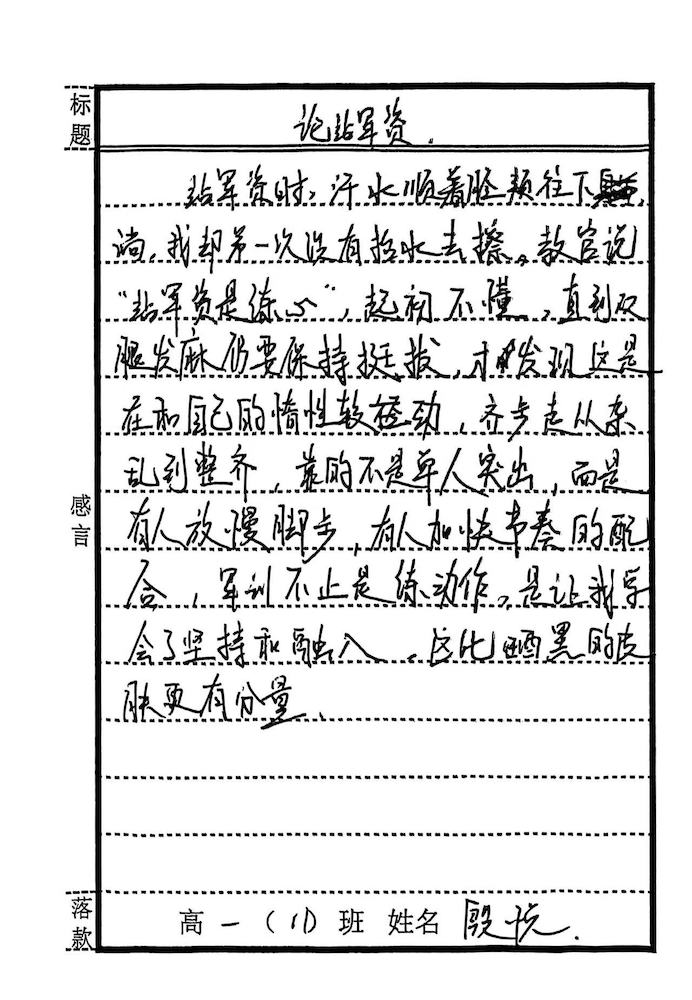 标题
论站军资.
站军资时，汗水顺着胫颊往下
淌，我却第一次没有抬水去擦。教官说
“站军资是练心”，起初不懂，直到双
腿发麻仍要保持挺拔，才发现这是
在和自己的惰性较劲，齐步走从杂
乱到整齐，靠的不是单人突出，而是
有人放慢脚步，有人加快节奏的配
合，军训不止是练动作。是让我学
会了坚持和融入，这比晒黑的皮
肤更有分量.
感言
落款
高一（11）班 姓名 殷悦.